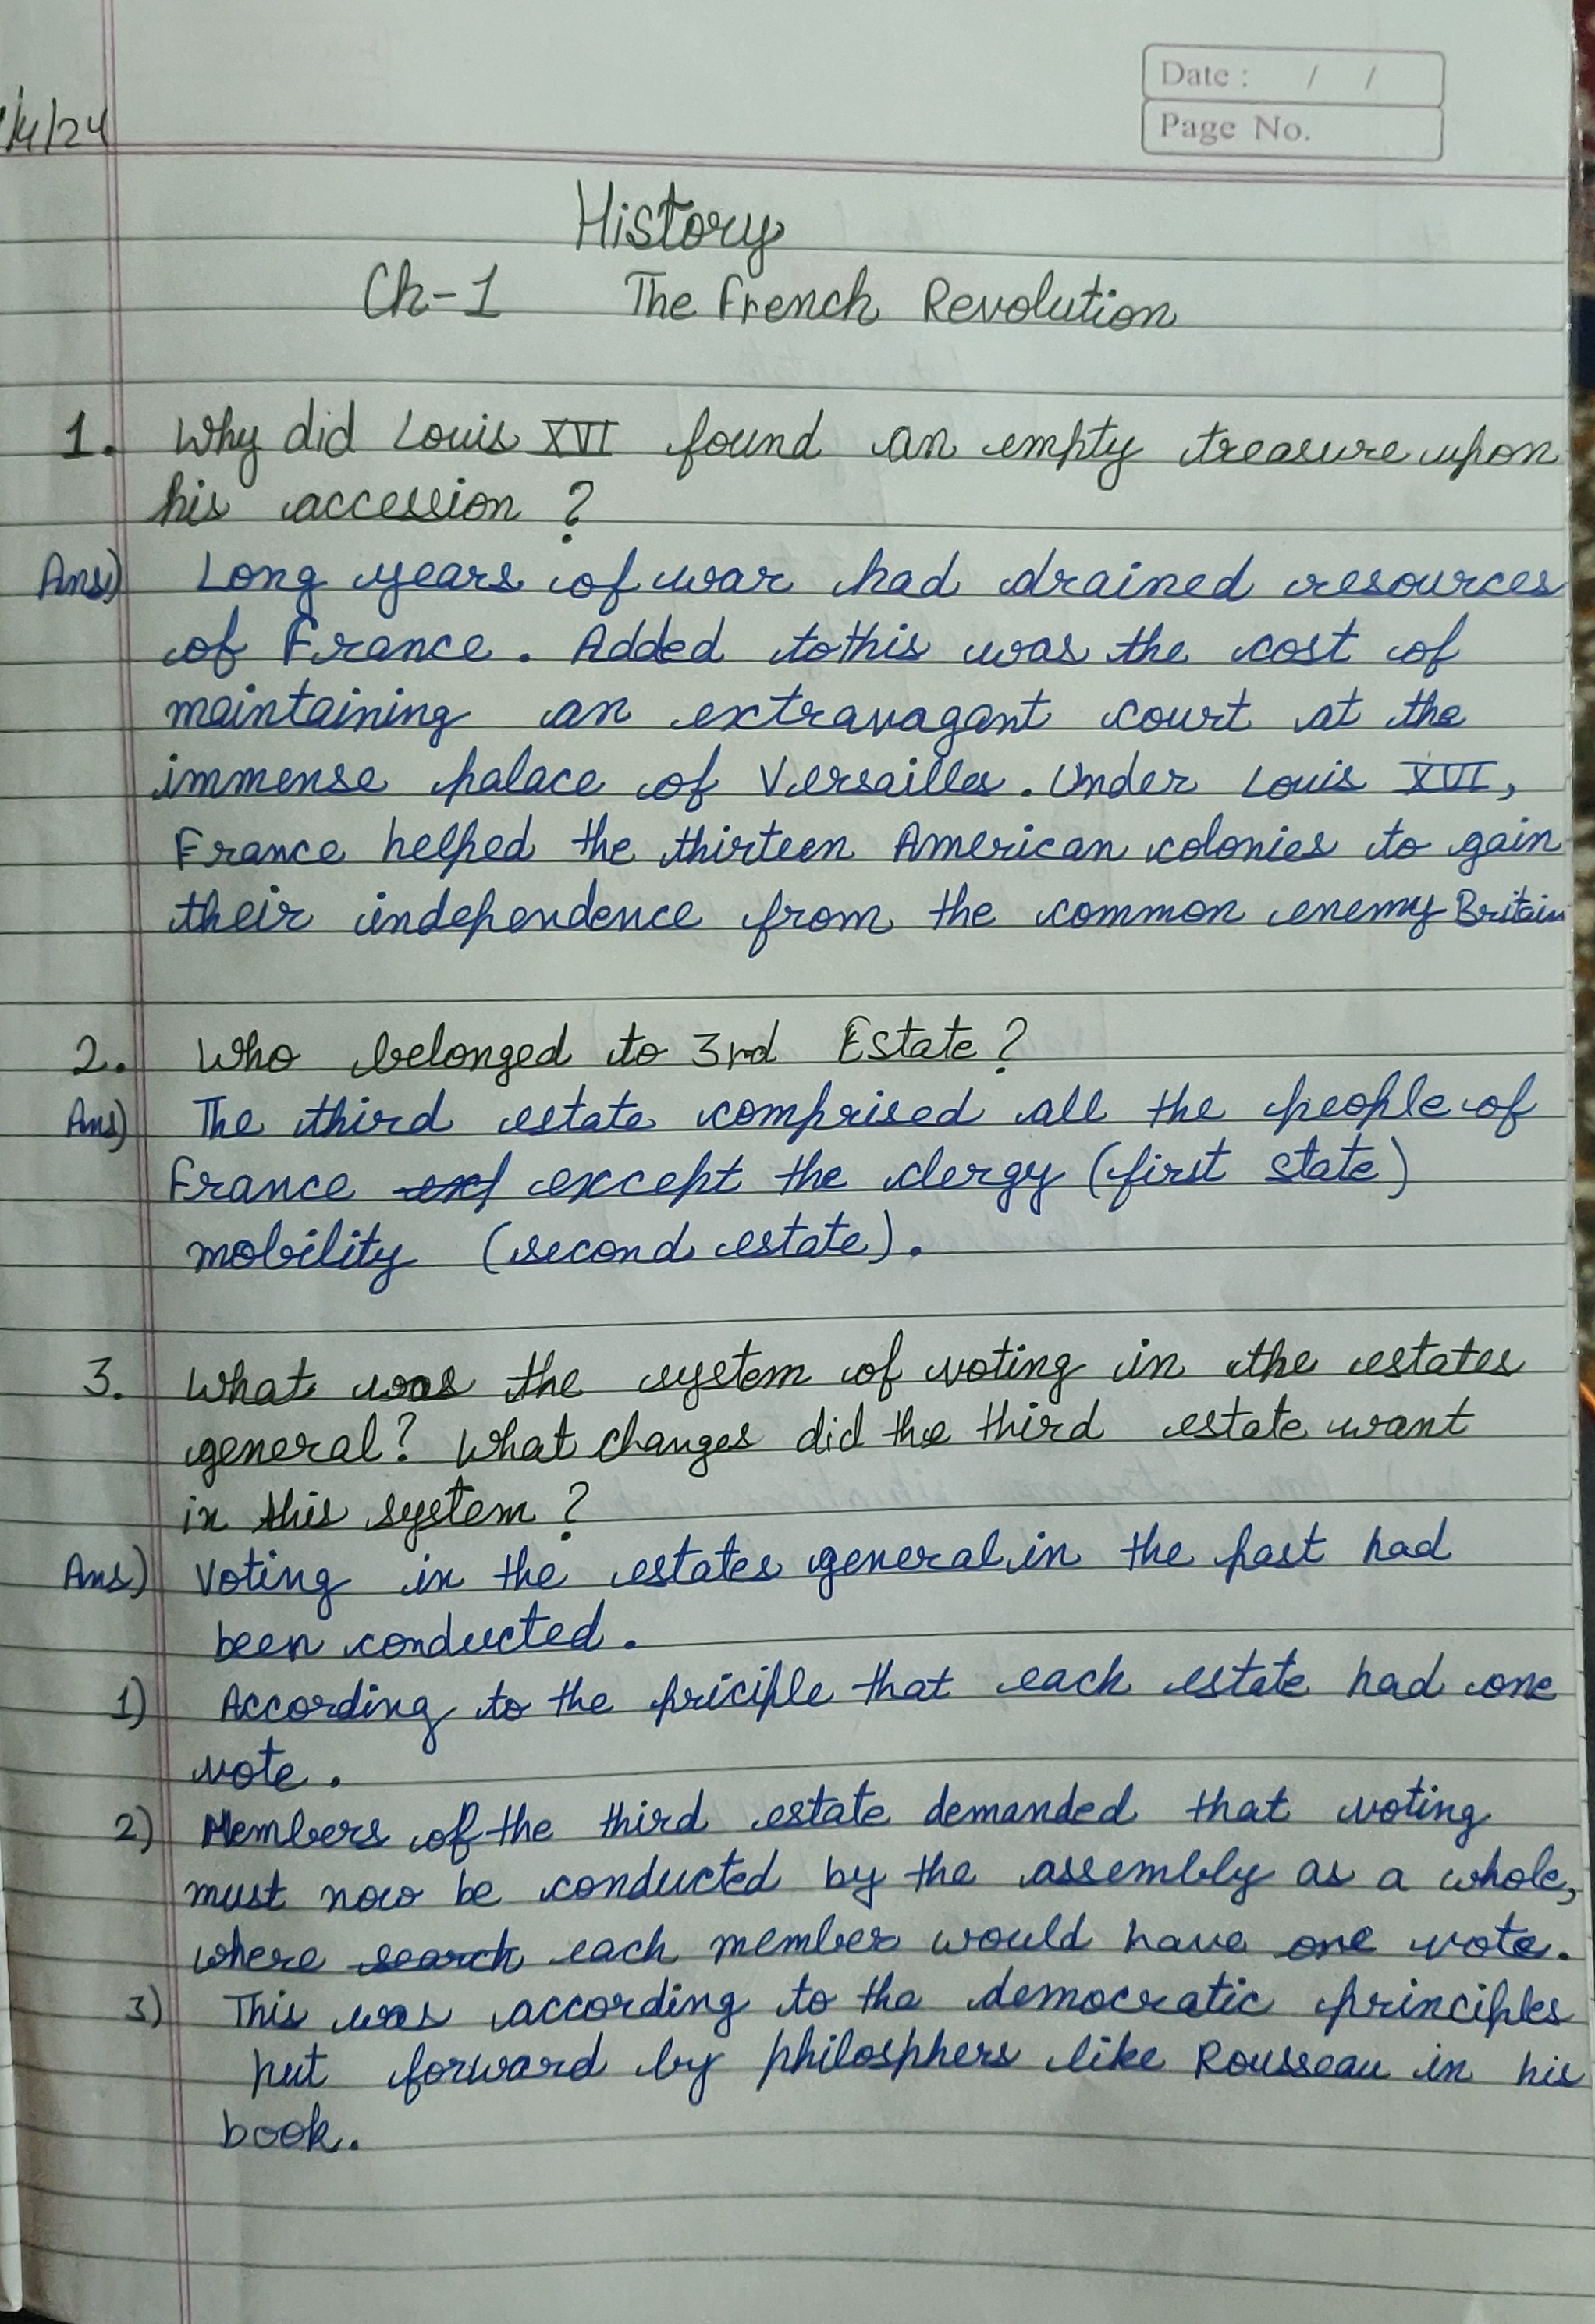 Date : / /
Page No.
/4/24
History
Ch-1 The French Revolution
1. Why did Louis XVI found an empty treasure upon
his accession ?
Ans) Long years of war had drained resources
of France. Added to this was the cost of
maintaining an extravagant court at the
immense palace of Versailles. Under Louis XVI,
France helped the thirteen American colonies to gain
their independence from the common enemy Britain
2. Who belonged to 3rd Estate ?
Ans) The third estate comprised all the people of
France except the clergy (first state)
mobility (second estate).
3. What was the system of voting in the estates
general? What changes did the third estate want
in this system ?
Ans) Voting in the estates general in the past had
been conducted.
1) According to the priciple that each estate had one
vote.
2) Members of the third estate demanded that voting
must now be conducted by the assembly as a whole,
where search each member would have one vote.
3) This was according to the democratic principles
put forward by philosphers like Rousseau in his
book.